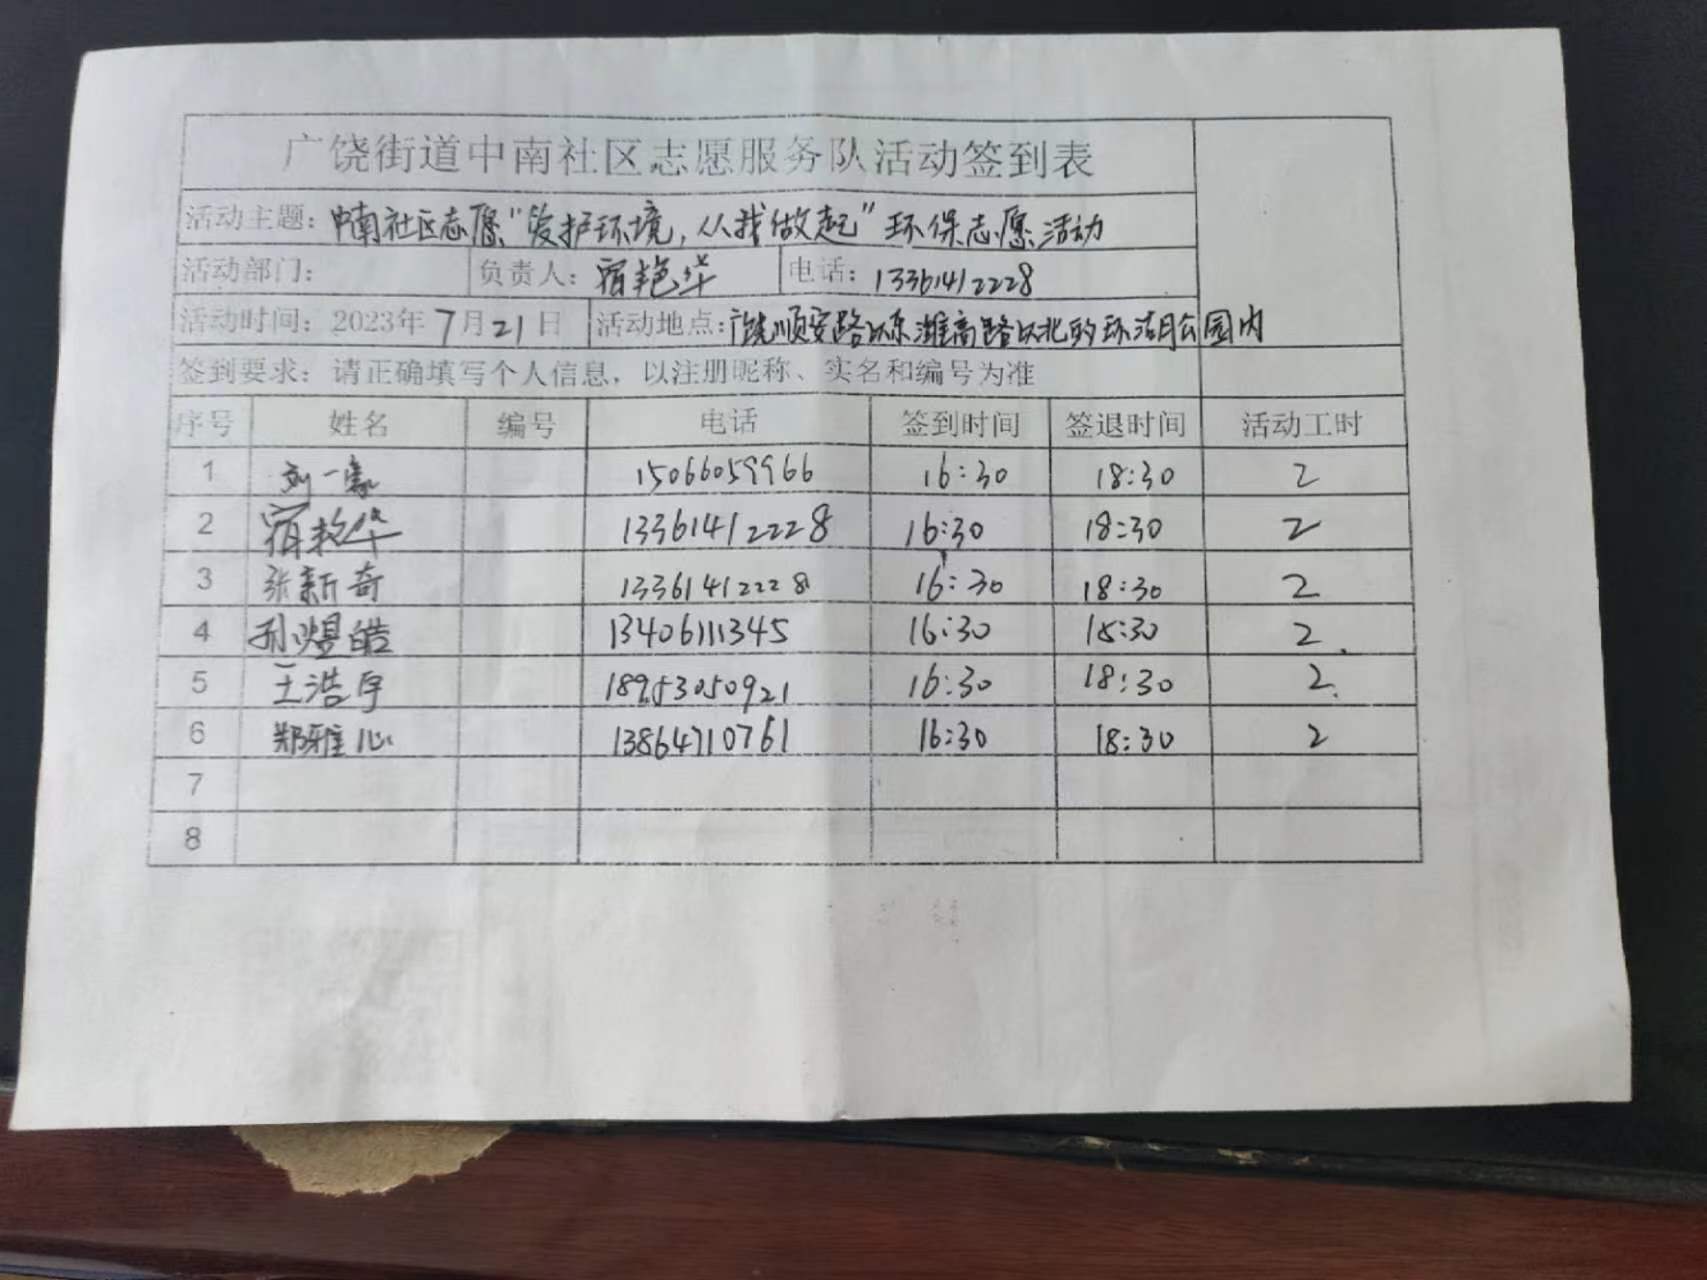 广饶街道中南社区志愿服务队活动签到表
活动主题：中南社区志愿“爱护环境，从我做起”环保志愿活动
活动部门： 负责人：宿艳华 电话：13361412228
活动时间：2023年7月21日 活动地点：广饶顺安路以东潍高路以北的环湖公园内
签到要求：请正确填写个人信息，以注册昵称、实名和编号为准
序号 姓名 编号 电话 签到时间 签退时间 活动工时
1 刘一 15066059966 16:30 18:30 2
2 宿艳华 13361412228 16:30 18:30 2
3 张新奇 13361412228 16:30 18:30 2
4 孙煜皓 13406111345 16:30 18:30 2
5 王浩宇 18953050921 16:30 18:30 2
6 郑雅心 13864710761 16:30 18:30 2
7
8